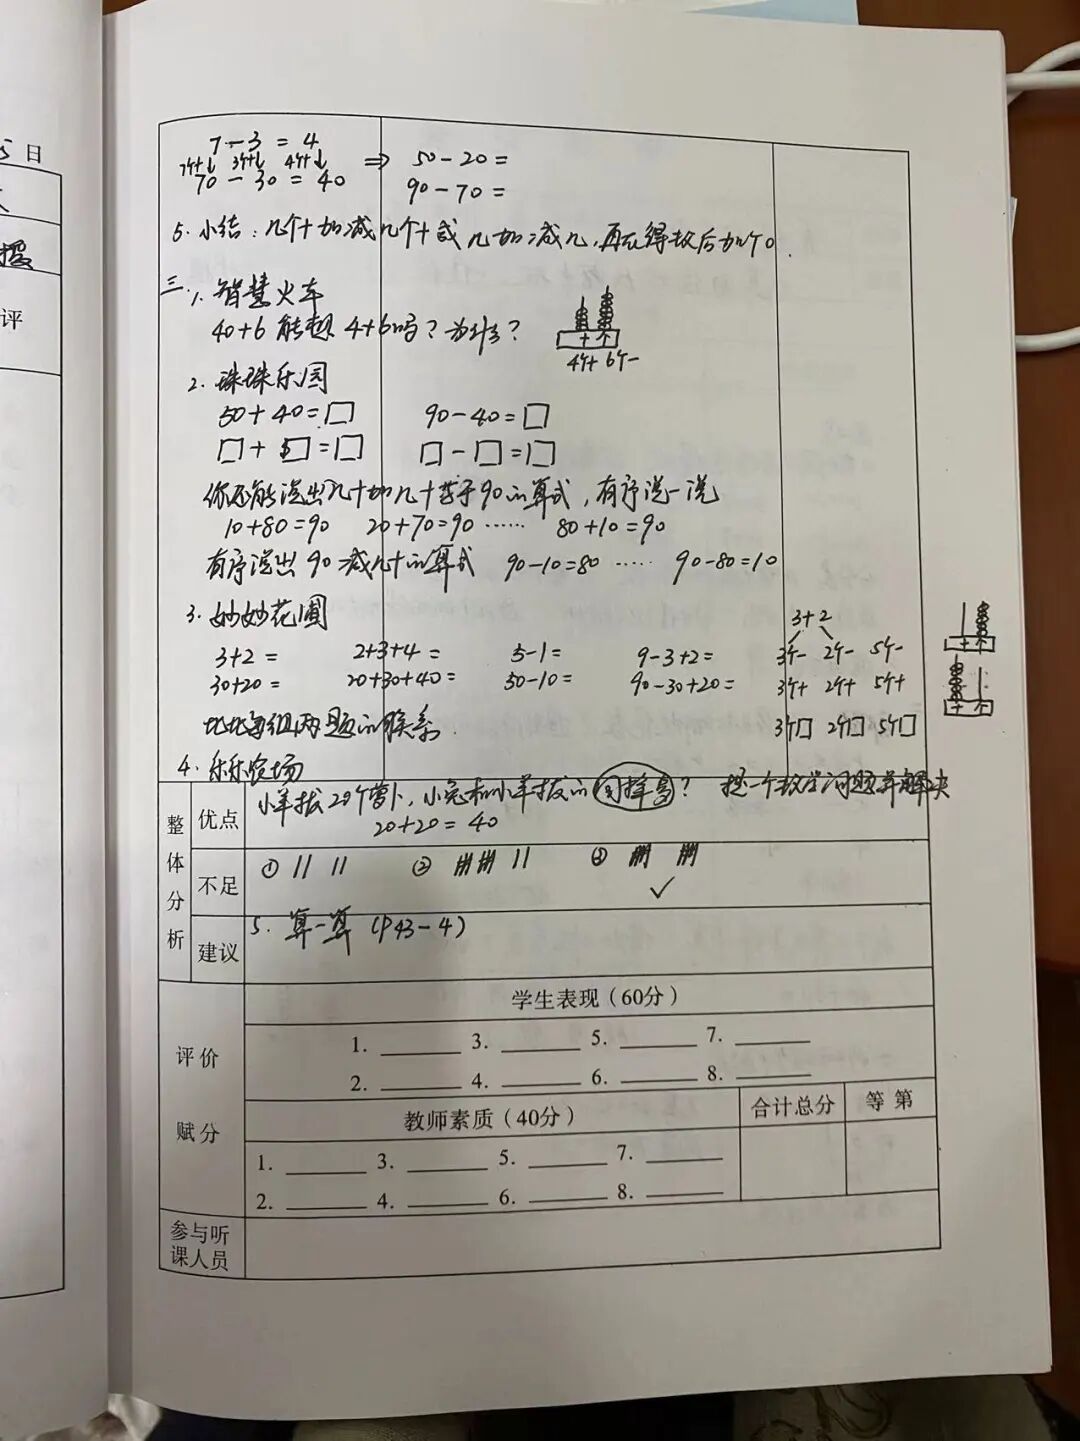 5日
评
7-3=4
7个十↓ 3个十↓ 4个十↓ ⇒ 50-20=
70-30=40 90-70=
5. 小结：几个十加减几个十或几加减几，再在得数后加个0.
三. 1. 智慧火车
40+6能想4+6吗？为什么？
十 个
4个十 6个一
2. 珠珠乐园
50+40=□ 90-40=□
□+□=□ □-□=□
你还能说出几十加几十等于90的算式，有序说一说
10+80=90 20+70=90 …… 80+10=90
有序说出90减几十的算式 90-10=80 …… 90-80=10
3. 妙妙花圃
3+2= 2+3+4= 5-1= 9-3+2=
30+20= 20+30+40= 50-10= 90-30+20=
比比每组两题的联系.
3+2
3个一 2个一 5个一
3个十 2个十 5个十
3个□ 2个□ 5个□
十 个
十 个
4. 乐乐农场
小羊拔20个萝卜，小兔和小羊拔的同样多？ 提一个数学问题并解决
20+20=40
① ② ③ ✓
5. 算一算（P43-4）
整体分析
优点
不足
建议
评价赋分
学生表现（60分）
1. 3. 5. 7.
2. 4. 6. 8.
教师素质（40分） 合计总分 等第
1. 3. 5. 7.
2. 4. 6. 8.
参与听
课人员